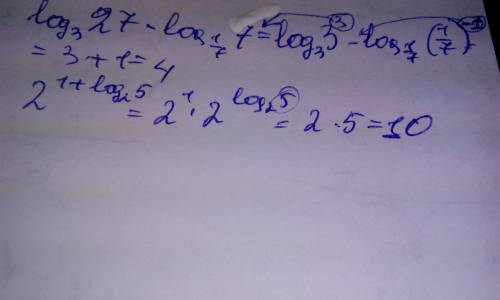 log₃ 27 - log_{1/7} 7 = log₃ 3^③ - log_{1/7} (1/7)^{-1} =
= 3 + 1 = 4
2^{1+log₂5} = 2¹ · 2^{log₂5} = 2 · 5 = 10